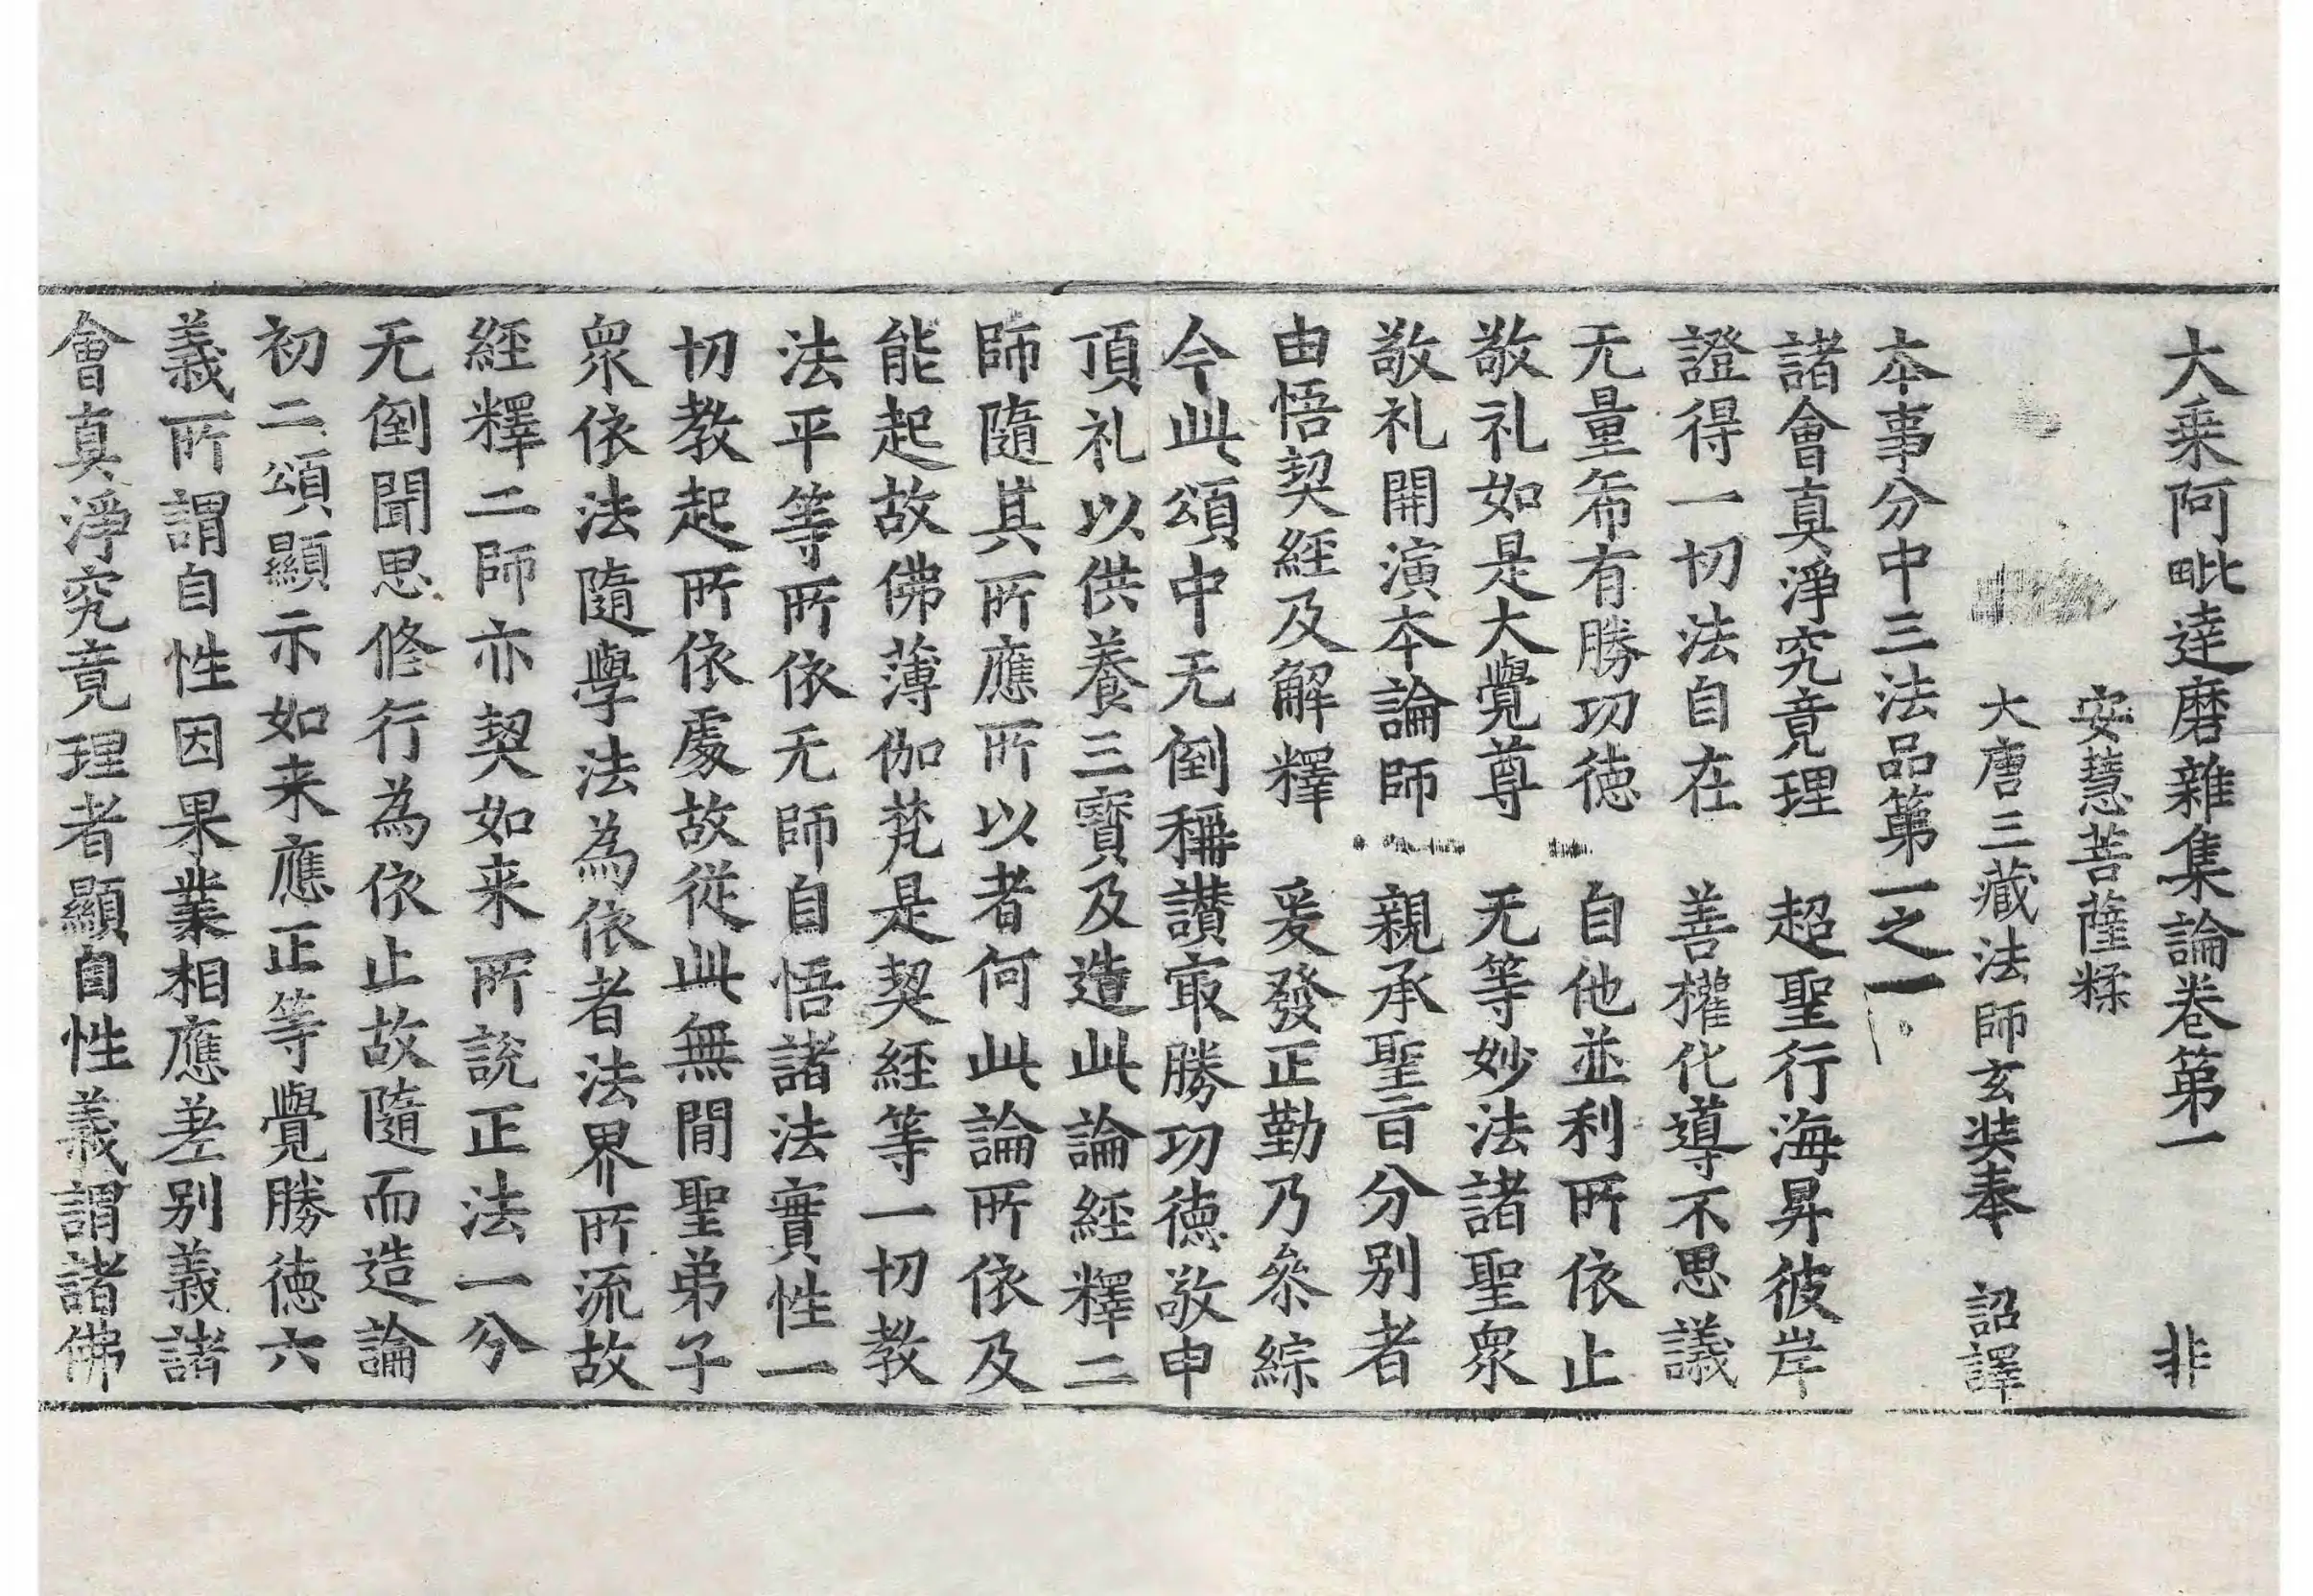 大乗阿毗達磨雜集論卷第一　非
安慧菩薩糅
大唐三藏法師玄奘奉　詔譯
本事分中三法品第一之一
諸會真淨究竟理　超聖行海昇彼岸
證得一切法自在　善權化導不思議
无量希有勝功徳　自他並利所依止
敬礼如是大覺尊　无等妙法諸聖衆
敬礼開演本論師　親承聖旨分別者
由悟契経及解釋　爰發正勤乃叅綜
今此頌中无倒稱讃㝡勝功徳敬申
頂礼以供養三寶及造此論經釋二
師隨其所應所以者何此論所依及
能起故佛薄伽梵是契経等一切教
法平等所依无師自悟諸法實性一
切教起所依處故從此無閒聖弟子
衆依法隨學法為依者法界所流故
経釋二師亦契如来所說正法一分
无倒聞思修行為依止故隨而造論
初二頌顯示如来應正等覺勝徳六
義所謂自性因果業相應差別義諸
會真淨究竟理者顯自性義謂諸佛